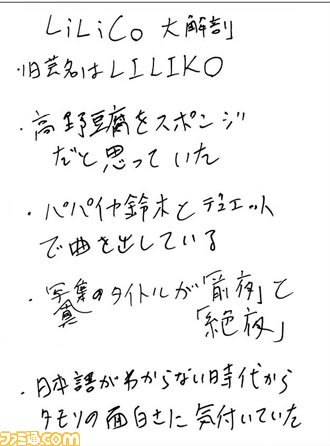 LiLiCo 大解剖
・旧芸名はLILIKO
・高野豆腐をスポンジ
だと思っていた
・パパイヤ鈴木とデュエット
で曲を出している
・写真集のタイトルが「前夜」と
「絶夜」
・日本語がわからない時代から
タモリの面白さに気付いていた
ファミ通.com